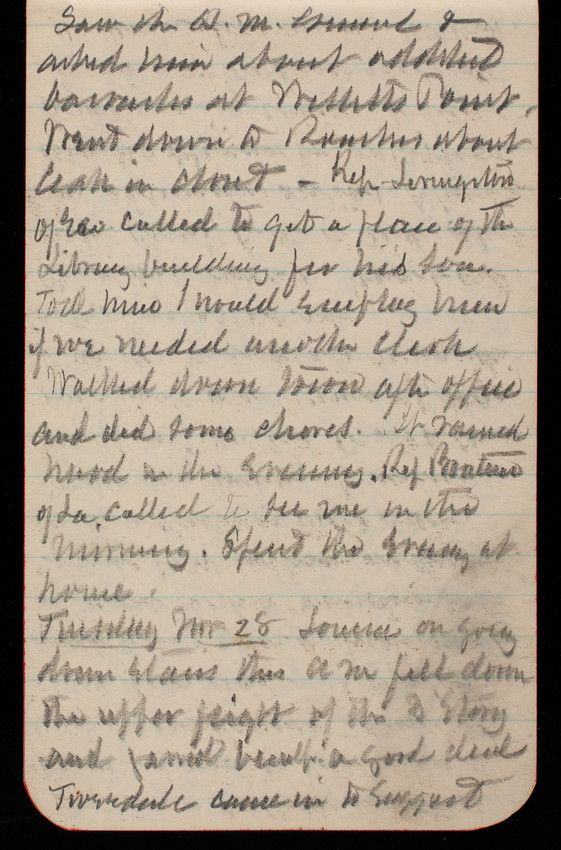 Saw the Q. M. General &
asked him about additnl
barracks at Willetts Point,
Went down to about
leak in closet - Rep. Livingston
of Geo called to get a place of the
Library building for his son.
Told him I would employ him
if we needed another clerk
Walked down town aftr office
and did some chores. It rained
hard in the Evening. Rep Boatner
of La, called to see me in the
Morning. Spent the Evening at
home.
Tuesday Nov 28 Louise on going
down stairs this a m fell down
the upper flight of the
and herself a good deal
came in to suggest